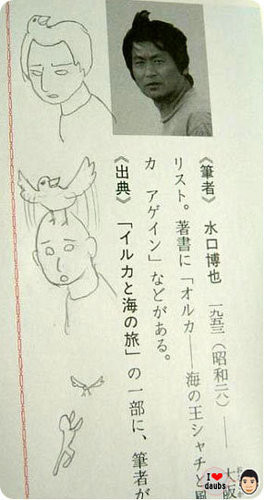 《筆者》 水口博也 一九五三(昭和二八)―― 大阪
リスト。著書に「オルカ――海の王シャチと風
カ アゲイン」などがある。
《出典》「イルカと海の旅」の一部に、筆者が
I ♥ daubs